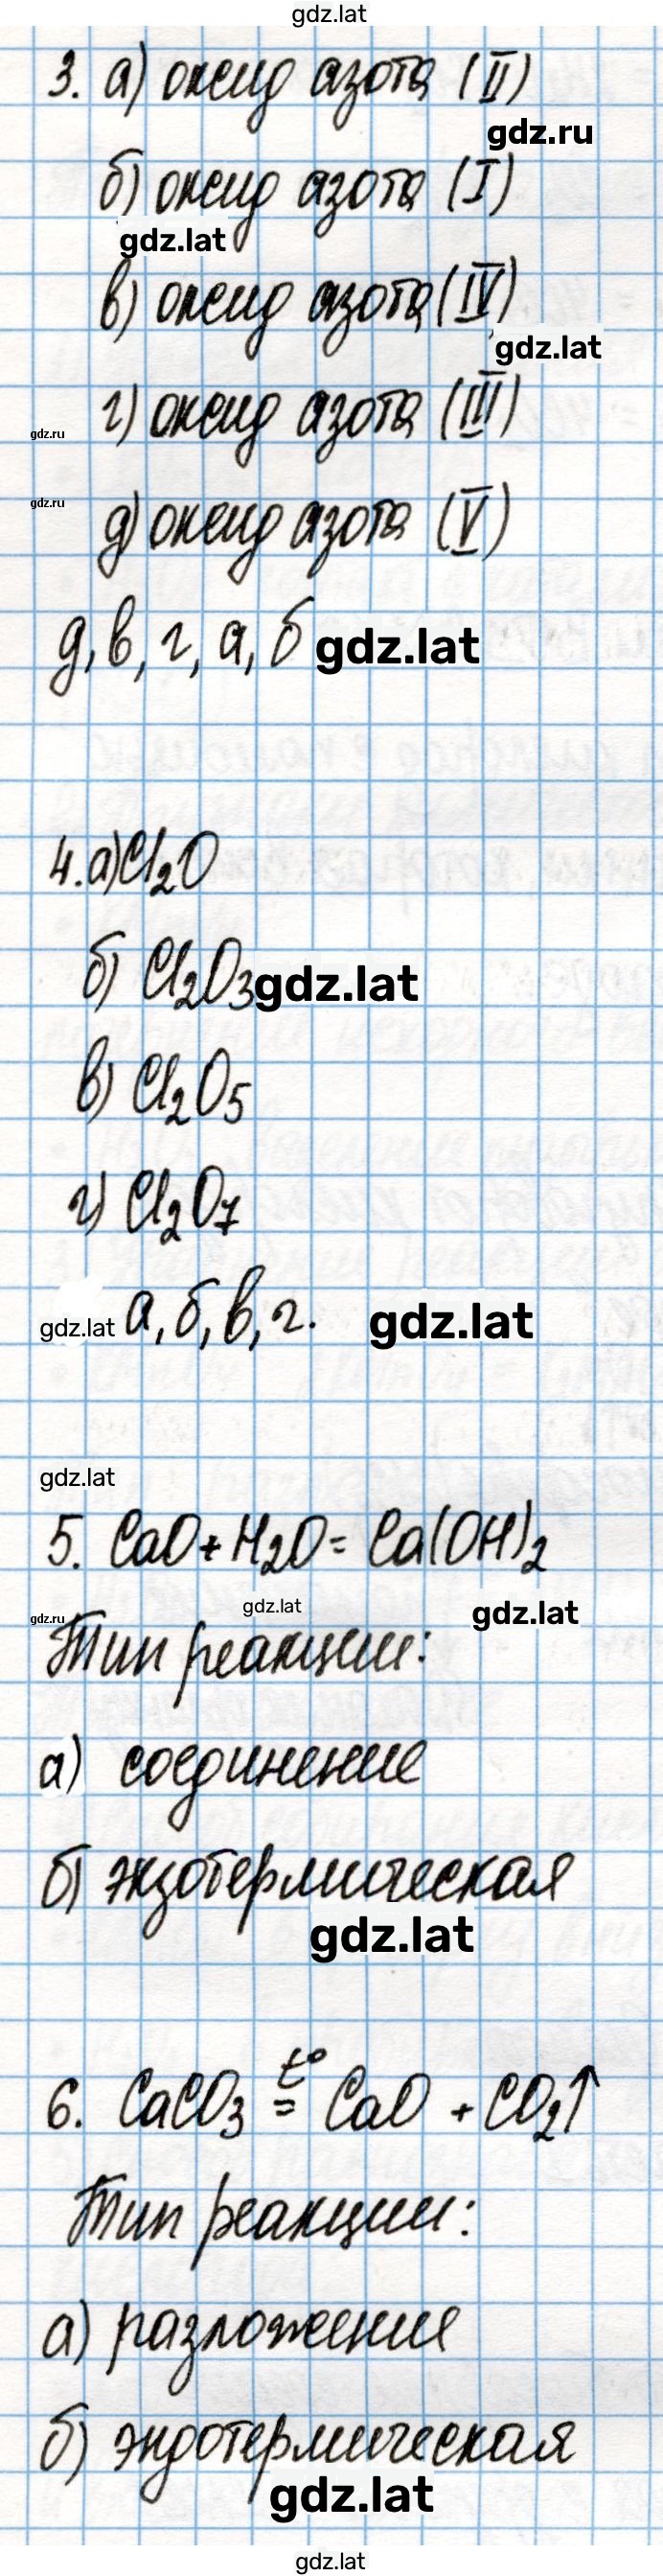 gdz.lat
3. а) оксид азота (II)
gdz.ru
б) оксид азота (I)
gdz.lat
в) оксид азота (IV)
gdz.lat
г) оксид азота (III)
gdz.ru
gdz.ru
д) оксид азота (V)
д, в, г, а, б gdz.lat
4. а) Cl₂O
б) Cl₂O₃ gdz.lat
в) Cl₂O₅
г) Cl₂O₇
gdz.lat а, б, в, г. gdz.lat
gdz.lat
5. CaO + H₂O = Ca(OH)₂
gdz.lat gdz.lat
gdz.ru
Тип реакции:
а) соединение
б) экзотермическая
gdz.lat
6. CaCO₃ t°= CaO + CO₂↑
Тип реакции:
а) разложение
б) эндотермическая
gdz.lat
gdz.lat